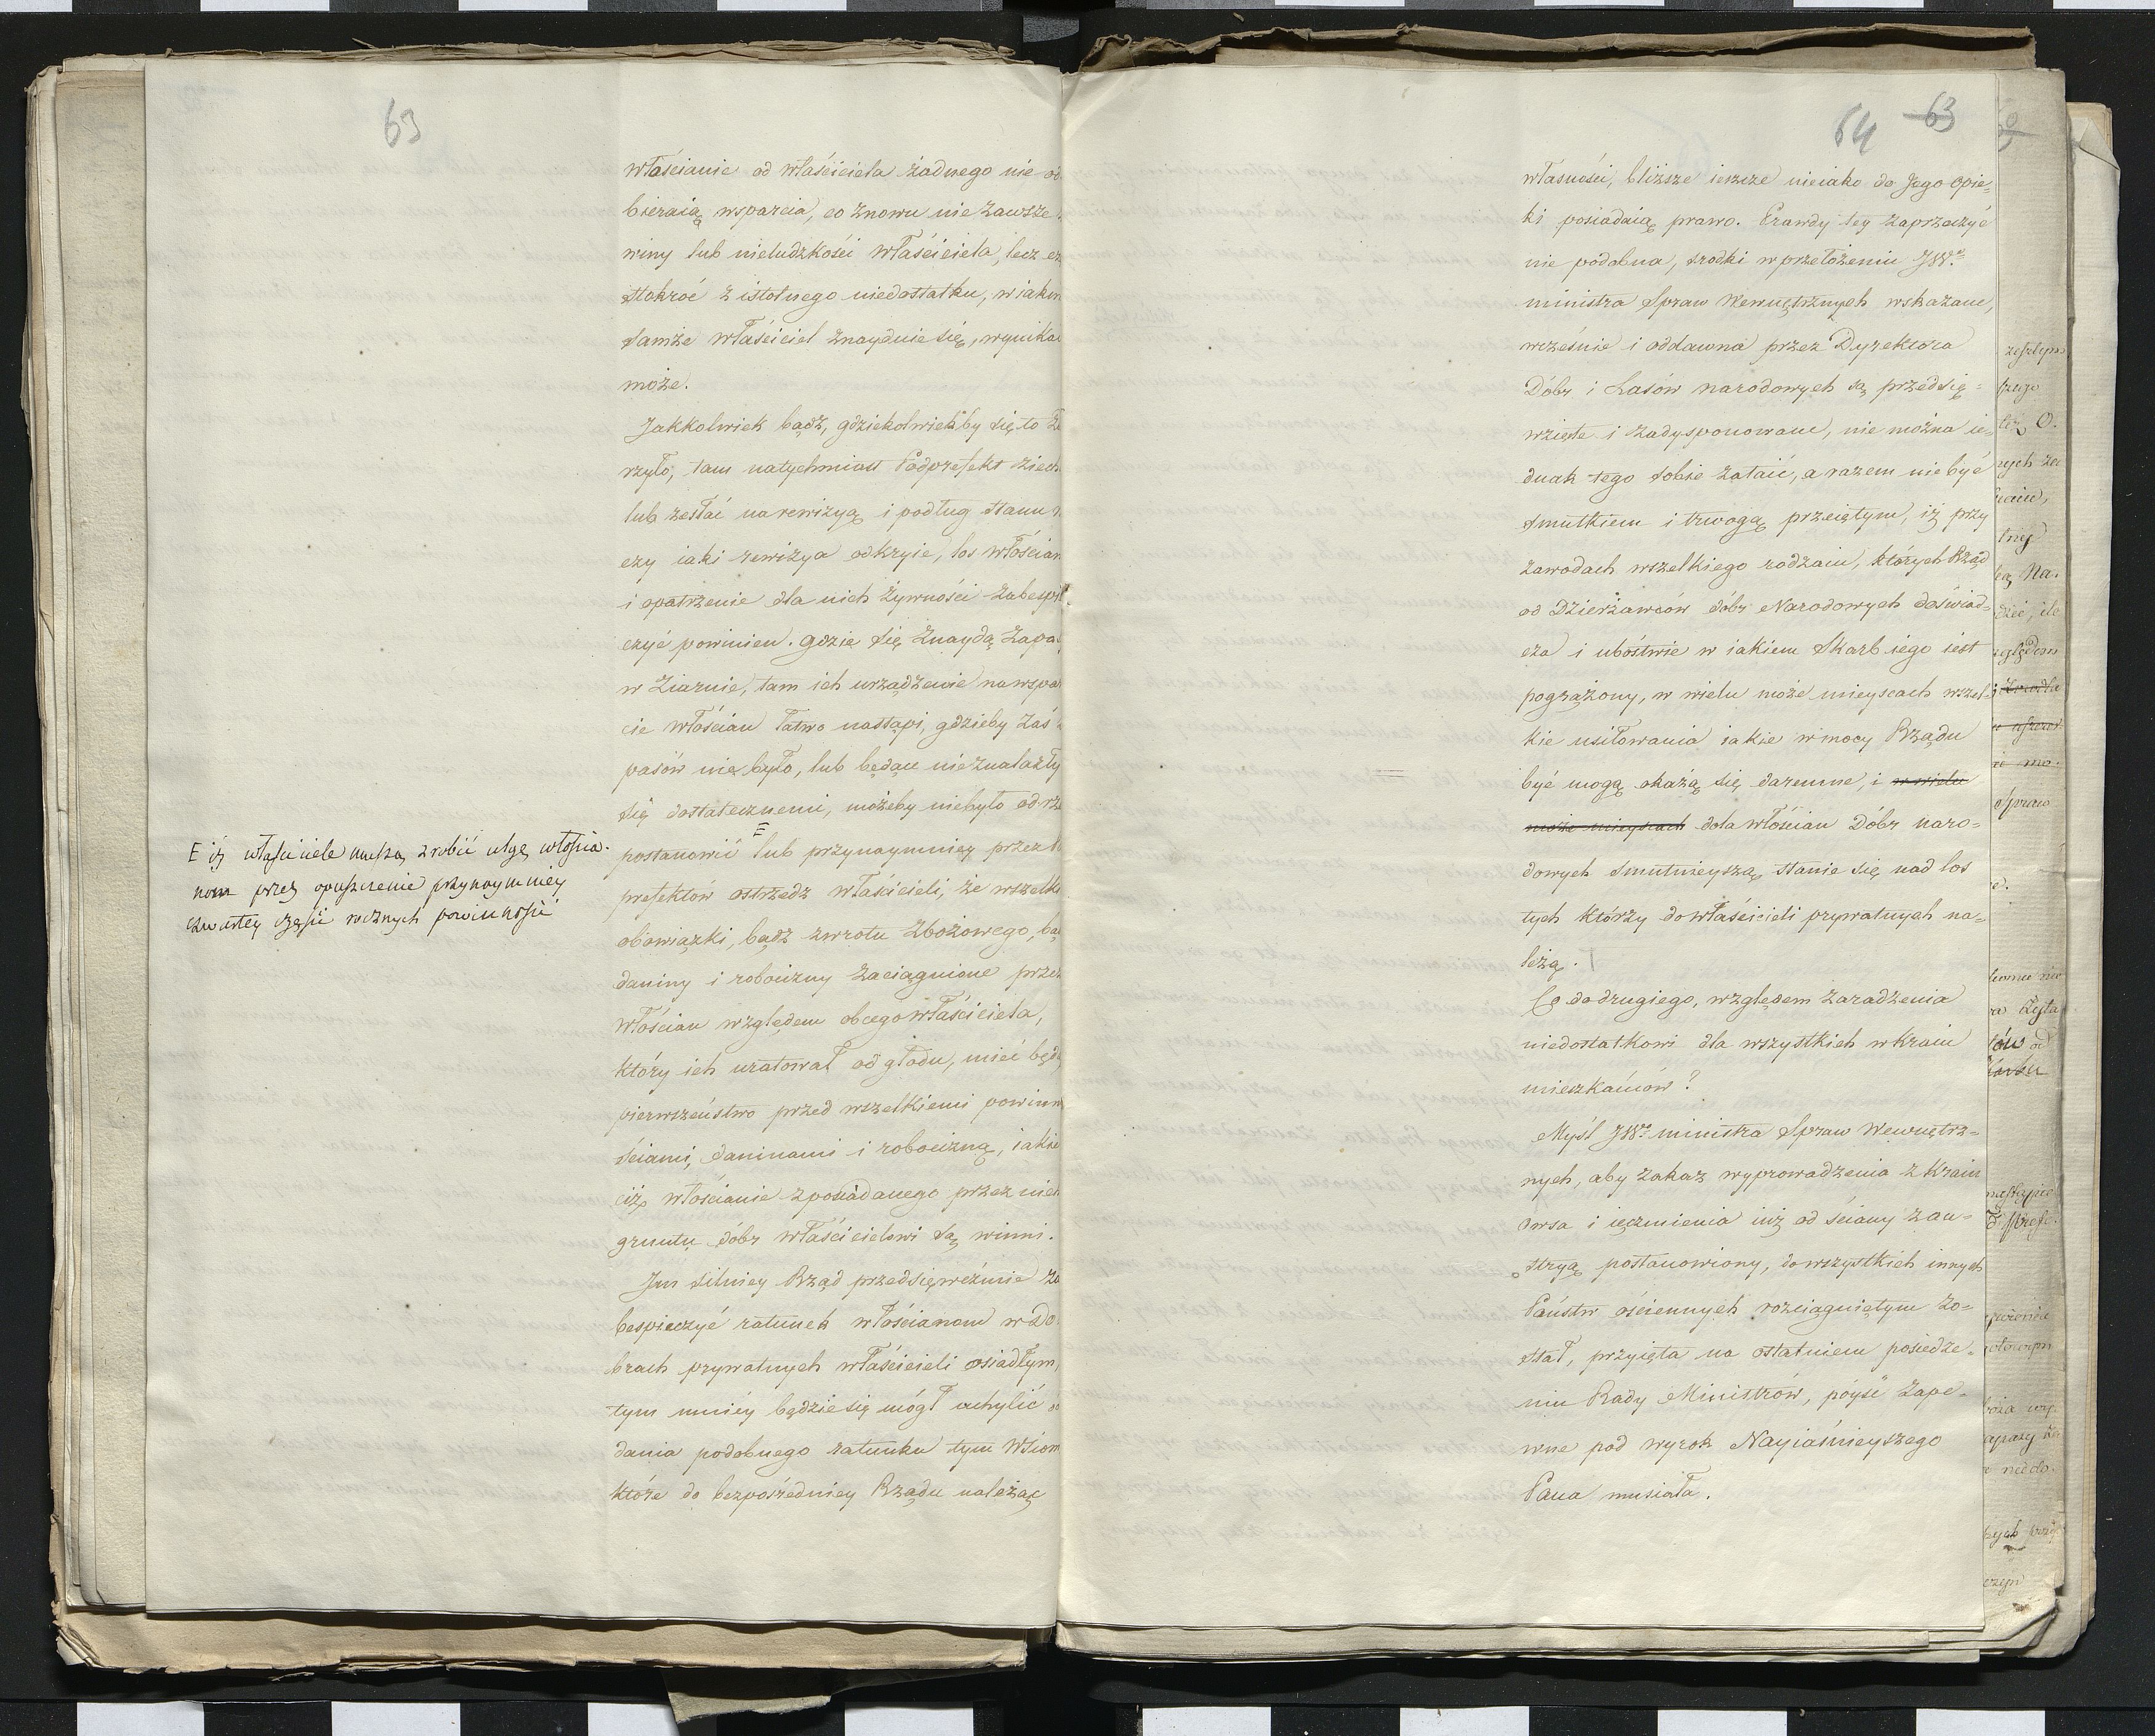 63
włościanie od właściciela żadnego nie od
bieraią wsparcia, co znowu nie zawsze z
winy lub nieludzkości właściciela, lecz czę
stokroć z istotnego niedostatku, w iakim
tamże właściciel znayduie się, wynikać
może.
Jakkolwiek bądź, gdziekolwiekby się to
rzyło, tam natychmiast Podprefekt ziech
lub zesłać na rewizyą i podług stanu
czy iaki rewizya odkryie, los włościan
i opatrzenie dla nich żywności zabespie
czyć powinien. gdzie się znaydą zapa
w ziarnie, tam ich urządzenie na wspar
cie włościan łatwo nastąpi, gdzieby zaś
pasów nie było, lub będąc nieznalazły
się dostatecznemi, możeby niebyło od rze
postanowić E lub przynaymniey przez
prefektów ostrzedz właścicieli, że wszelkie
obowiązki, bądź zwrotu zbożowego, bą
daniny i robocizny zaciągnione przez
włościan względem obcego właściciela,
który ich uratował od głodu, mieć będą
pierwszeństwo przed wszelkiemi powinno
ściami, daninami i robocizną, iakie
ciż włościanie z posiadanego przez nich
gruntu dóbr właścicielowi są winni.
Im silniey Rząd przedsięweźmie za
bespieczyć ratunek włościanom w do
brach prywatnych właścicieli osiadłym,
tym mniéy będzie się mógł uchylić od
dania podobnego ratunku tym wsiom
które do bezpośredniey Rządu należąc
E iż właściciele muszą zrobić ulgę włościa-
nom przez opuszczenie przynaymniey
czwartey części rocznych powinności
64 63
własności, bliższe ieszcze nieiako do Jego opie-
ki posiadaią prawo. Prawdy tey zaprzeczyć
nie podobna, srodki w przełożeniu JW°
ministra Spraw Wewnętrznych wskazane,
wcześnie i oddawna przez Dyrektora
Dóbr i Lasów narodowych są przedsię-
wzięte i zadysponowane, nie można ie-
dnak tego sobie zataić, a razem nie być
smutkiem i trwogą przeiętym, iż przy
zawodach wszelkiego rodzaiu, których Rząd
od Dzierżawców dóbr Narodowych doświad-
cza i ubóstwie w iakiem Skarb iego iest
pogrążony, w wielu może mieyscach wszel-
kie usiłowania iakie w mocy Rządu
być mogą okażą się daremne, i w wielu
może mieyscach dola włościan Dóbr naro-
dowych smutnieyszą stanie się nad los
tych którzy do właścicieli prywatnych na-
leżą.
Co do drugiego, względem zaradzenia
niedostatkowi dla wszystkich w kraiu
mieszkańców?
Myśl JW° ministra Spraw Wewnętrz-
nych, aby zakaz wyprowadzenia z kraiu
owsa i ięczmienia iuż od ściany Zau-
stryą postanowiony, do wszystkich innych
Państw ościennych rozciągniętym zo-
stał, przyięta na ostatniem posiedze-
niu Rady Ministrów, póyść zape-
wne pod wyrok Nayiaśnieyszego
Pana musiała.